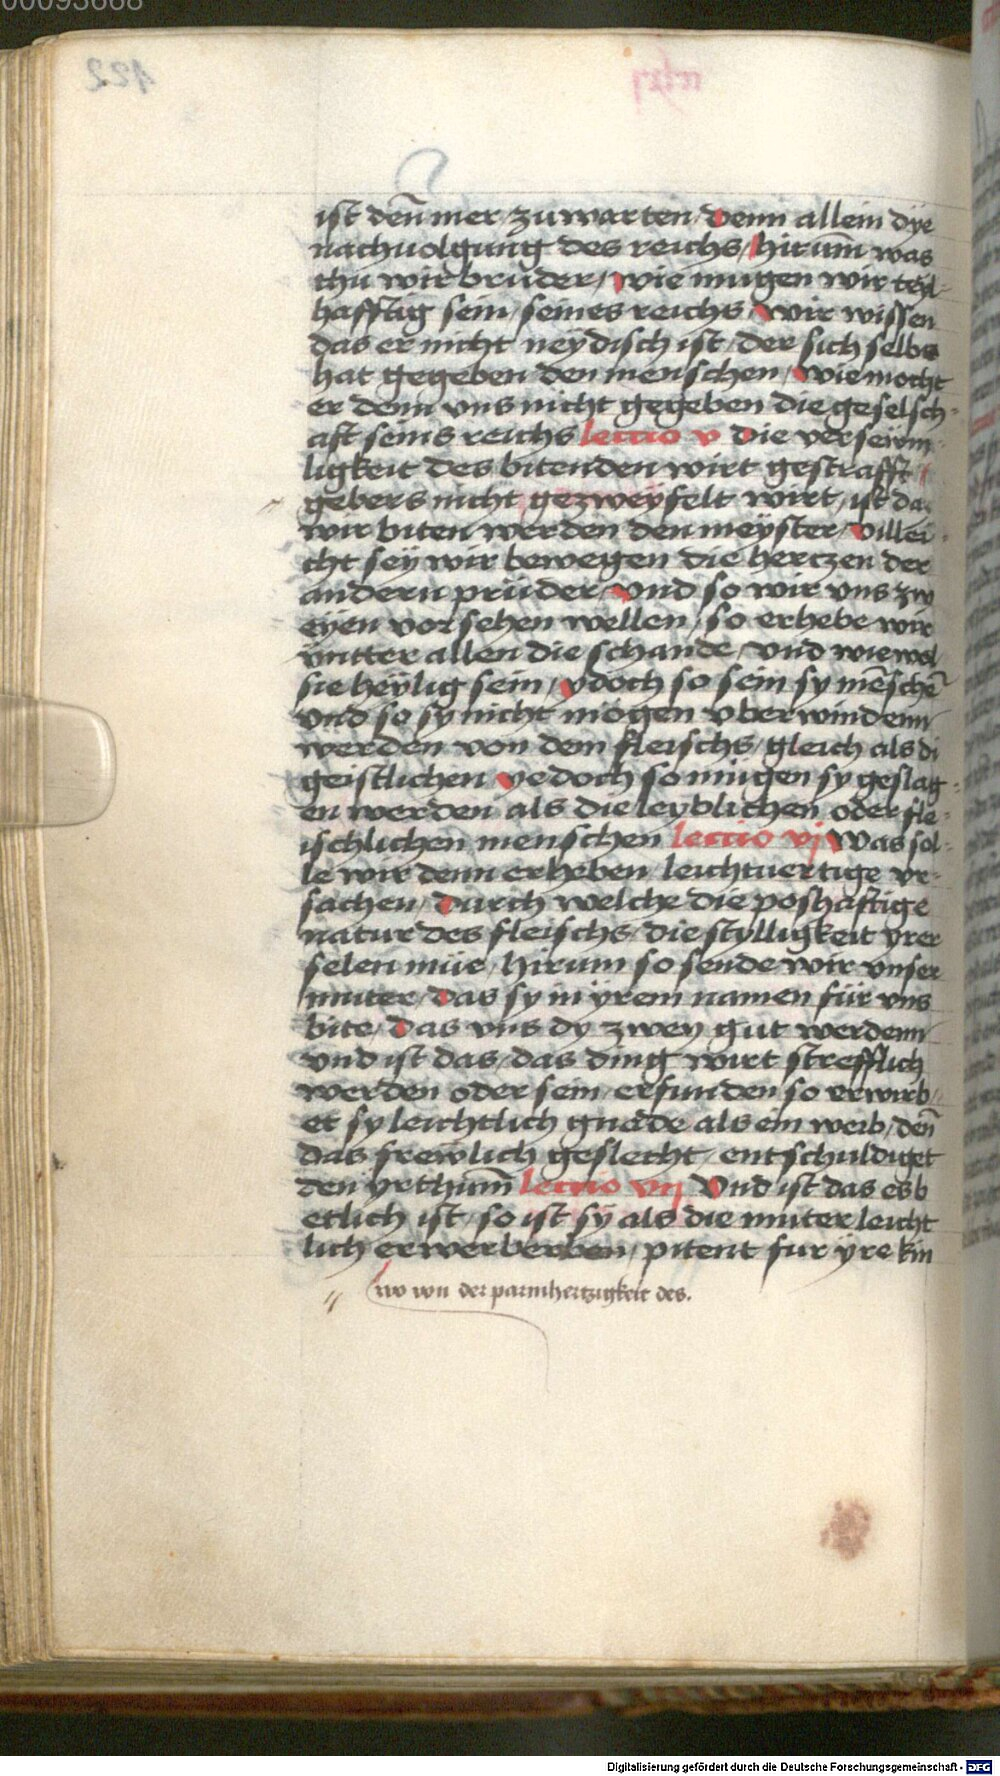 00093668
ist deñ mer / zuwarten / Denn allein dÿe
nachuolgung des reichs / hirum̄ was
thu wir bruder / wie mugen wir teÿl-
hafftig sein / seines reichs / Wir wissen
das er nicht neÿdisch ist / der sich selbs
hat gegeben den menschen / wie mocht
er denn vns nicht gegeben die geselsch-
aft seins reichs lectio v Die verseẅm-
ligkeit des bitenden wirt gestrafft /
gebers nicht gezweÿfelt wirt / ist das
wir biten werden den meÿster / villei-
cht seÿ wir bewegen die hertzen der
andern prüder / und so wir vns zw
eÿen vorsehen wellen / so erhebe wir
vntter allen die schande / Vnd wiewol
sie heÿlig sein / ydoch so sein sy mēschē
vnd so sy nicht mögen vberwindenn
werden von dem fleischs / gleich als di
geistlichen yedoch so mügen sy geslag-
en werden als die leyblichen oder fle-
ischlichen menschen lectio vj Was sol-
le wir denn erheben / leichtuertige vr-
sachen / Durch welche die poshaftige
natur des fleischs / die stylligkeit yrer
selen müe / hirum so sende wir vnser
muter / Das sy in ÿrem namen für vns
bite / Das vns dy zwen gut werdenn
vnd ist das / das ding wirt strefflich
werden oder sein / erfunden so erwirb-
et sy leichtlich gnade als ein weib / deñ
das freẅlich geslecht / entschuldiget
den yrthum̄ lectio vij Vnd ist das es b
etlich ist / so ist sÿ als die muter leicht
lich erwerberben / pitent fur ÿre kin
// wo von der parmhertzigkeit des.
Digitalisierung gefördert durch die Deutsche Forschungsgemeinschaft - DFG